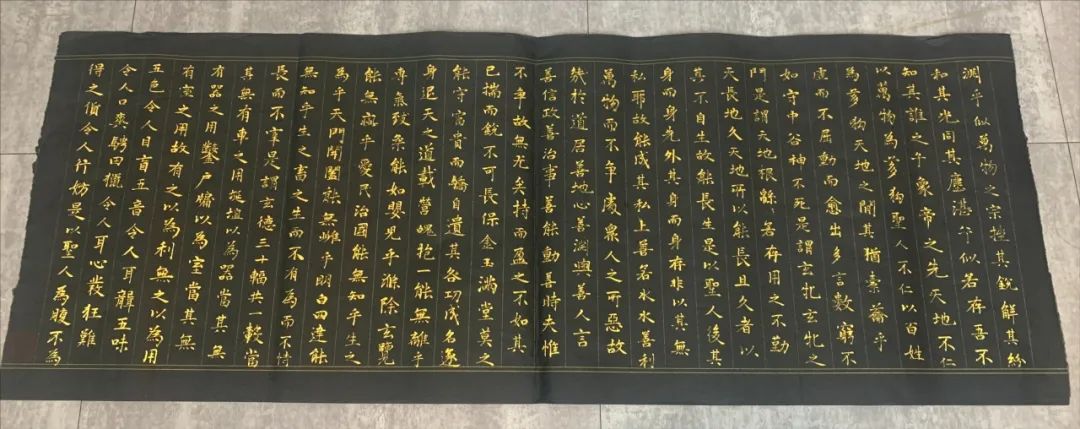 淵乎似萬物之宗挫其銳解其紛
和其光同其塵湛乎似若存吾不
知其誰之子象帝之先天地不仁
以萬物為芻狗聖人不仁以百姓
為芻狗天地之間其猶橐籥乎
虛而不屈動而愈出多言數窮不
如守中谷神不死是謂玄牝玄牝之
門是謂天地根緜緜若存用之不勤
天長地久天地所以能長且久者以
其不自生故能長生是以聖人後其
身而身先外其身而身存非以其無
私耶故能成其私上善若水水善利
萬物而不爭處衆人之所惡故
幾於道居善地心善淵與善人言
善信政善治事善能動善時夫惟
不爭故無尤矣持而盈之不如其
已揣而銳不可長保金玉滿堂莫之
能守富貴而驕自遺其咎功成名遂
身退天之道載營魄抱一能無離乎
專氣致柔能如嬰兒乎滌除玄覽
能無疵乎愛民治國能無知乎生之
為乎天門開闔能無雌乎明白四達能
無知乎生之畜之生而不有為而不恃
長而不宰是謂玄德三十輻共一轂當
其無有車之用埏埴以為器當其無
有器之用鑿戶牖以為室當其無
有室之用故有之以為利無之以為用
五色令人目盲五音令人耳聾五味
令人口爽馳田獵令人耳心發狂難
得之貨令人行妨是以聖人為腹不為